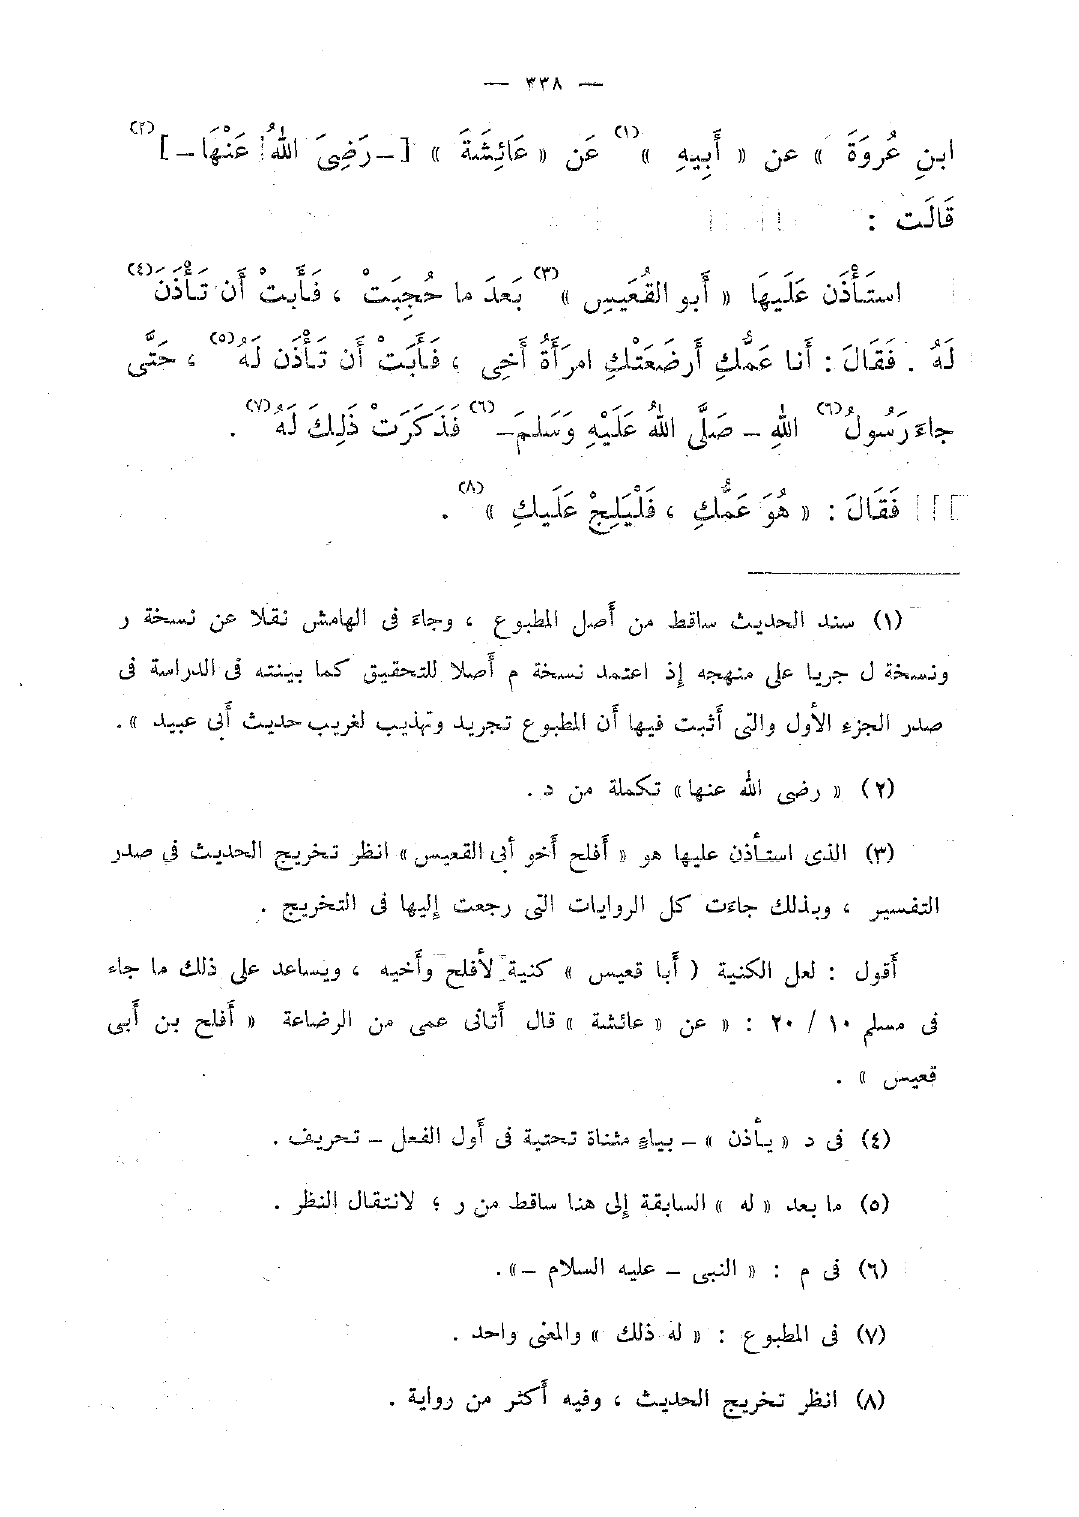 — ٣٣٨ —
ابنِ عُروَةَ » عن « أَبِيهِ »(١) عَن « عَائِشَةَ » [– رَضِىَ اللهُ عَنْهَا –](٢)
قَالَت :
استَأْذَن عَلَيهَا « أَبو القُعَيسِ »(٣) بَعدَ ما حُجِبَتْ ، فَأَبتْ أَن تَأْذَنَ(٤)
لَهُ . فَقَالَ : أَنا عَمُّكِ أَرضَعَتْكِ امرَأَةُ أَخِى ، فَأَبَتْ أَن تَأْذَن لَهُ(٥) ، حَتَّى
جاءَ رَسُولُ(٦) اللهِ – صَلَّى اللهُ عَلَيْهِ وَسَلمَ –(٦) فَذَكَرَتْ ذَلِكَ لَهُ(٧) .
فَقَالَ : « هُوَ عَمُّكِ ، فَلْيَلِجْ عَلَيكِ »(٨) .
(١) سند الحديث ساقط من أَصل المطبوع ، وجاءَ فى الهامش نقلا عن نسخة ر
ونسخة ل جريا على منهجه إذ اعتمد نسخة م أَصلا للتحقيق كما بينته فى الدراسة فى
صدر الجزء الأَول والتى أَثبت فيها أَن المطبوع تجريد وتهذيب لغريب حديث أَبى عبيد » .
(٢) « رضى الله عنها» تكملة من د .
(٣) الذى استأْذن عليها هو « أَفلح أَخو أَبى القعيس » انظر تخريج الحديث فى صدر
التفسير ، وبذلك جاءَت كل الروايات التى رجعت إليها فى التخريج .
أَقول : لعل الكنية ( أَبا قعيس » كنية لأَفلح وأَخيه ، ويساعد على ذلك ما جاء
فى مسلم ١٠ / ٢٠ : « عن « عائشة » قال أَتانى عمى من الرضاعة « أَفلح بن أَبى
قعيس » .
(٤) فى د « يأْذن » – بياءٍ مثناة تحتية فى أَول الفعل – تحريف .
(٥) ما بعد « له » السابقة إلى هنا ساقط من ر ؛ لانتقال النظر .
(٦) فى م : « النبى – عليه السلام –» .
(٧) فى المطبوع : « له ذلك » والمعنى واحد .
(٨) انظر تخريج الحديث ، وفيه أَكثر من رواية .